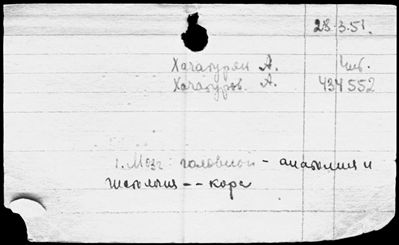 28.3.51.
Хачатурян А. Чит.
Хачатуров. А. 434552
1. Мозг: головной - анатомия и
гистология -- кора